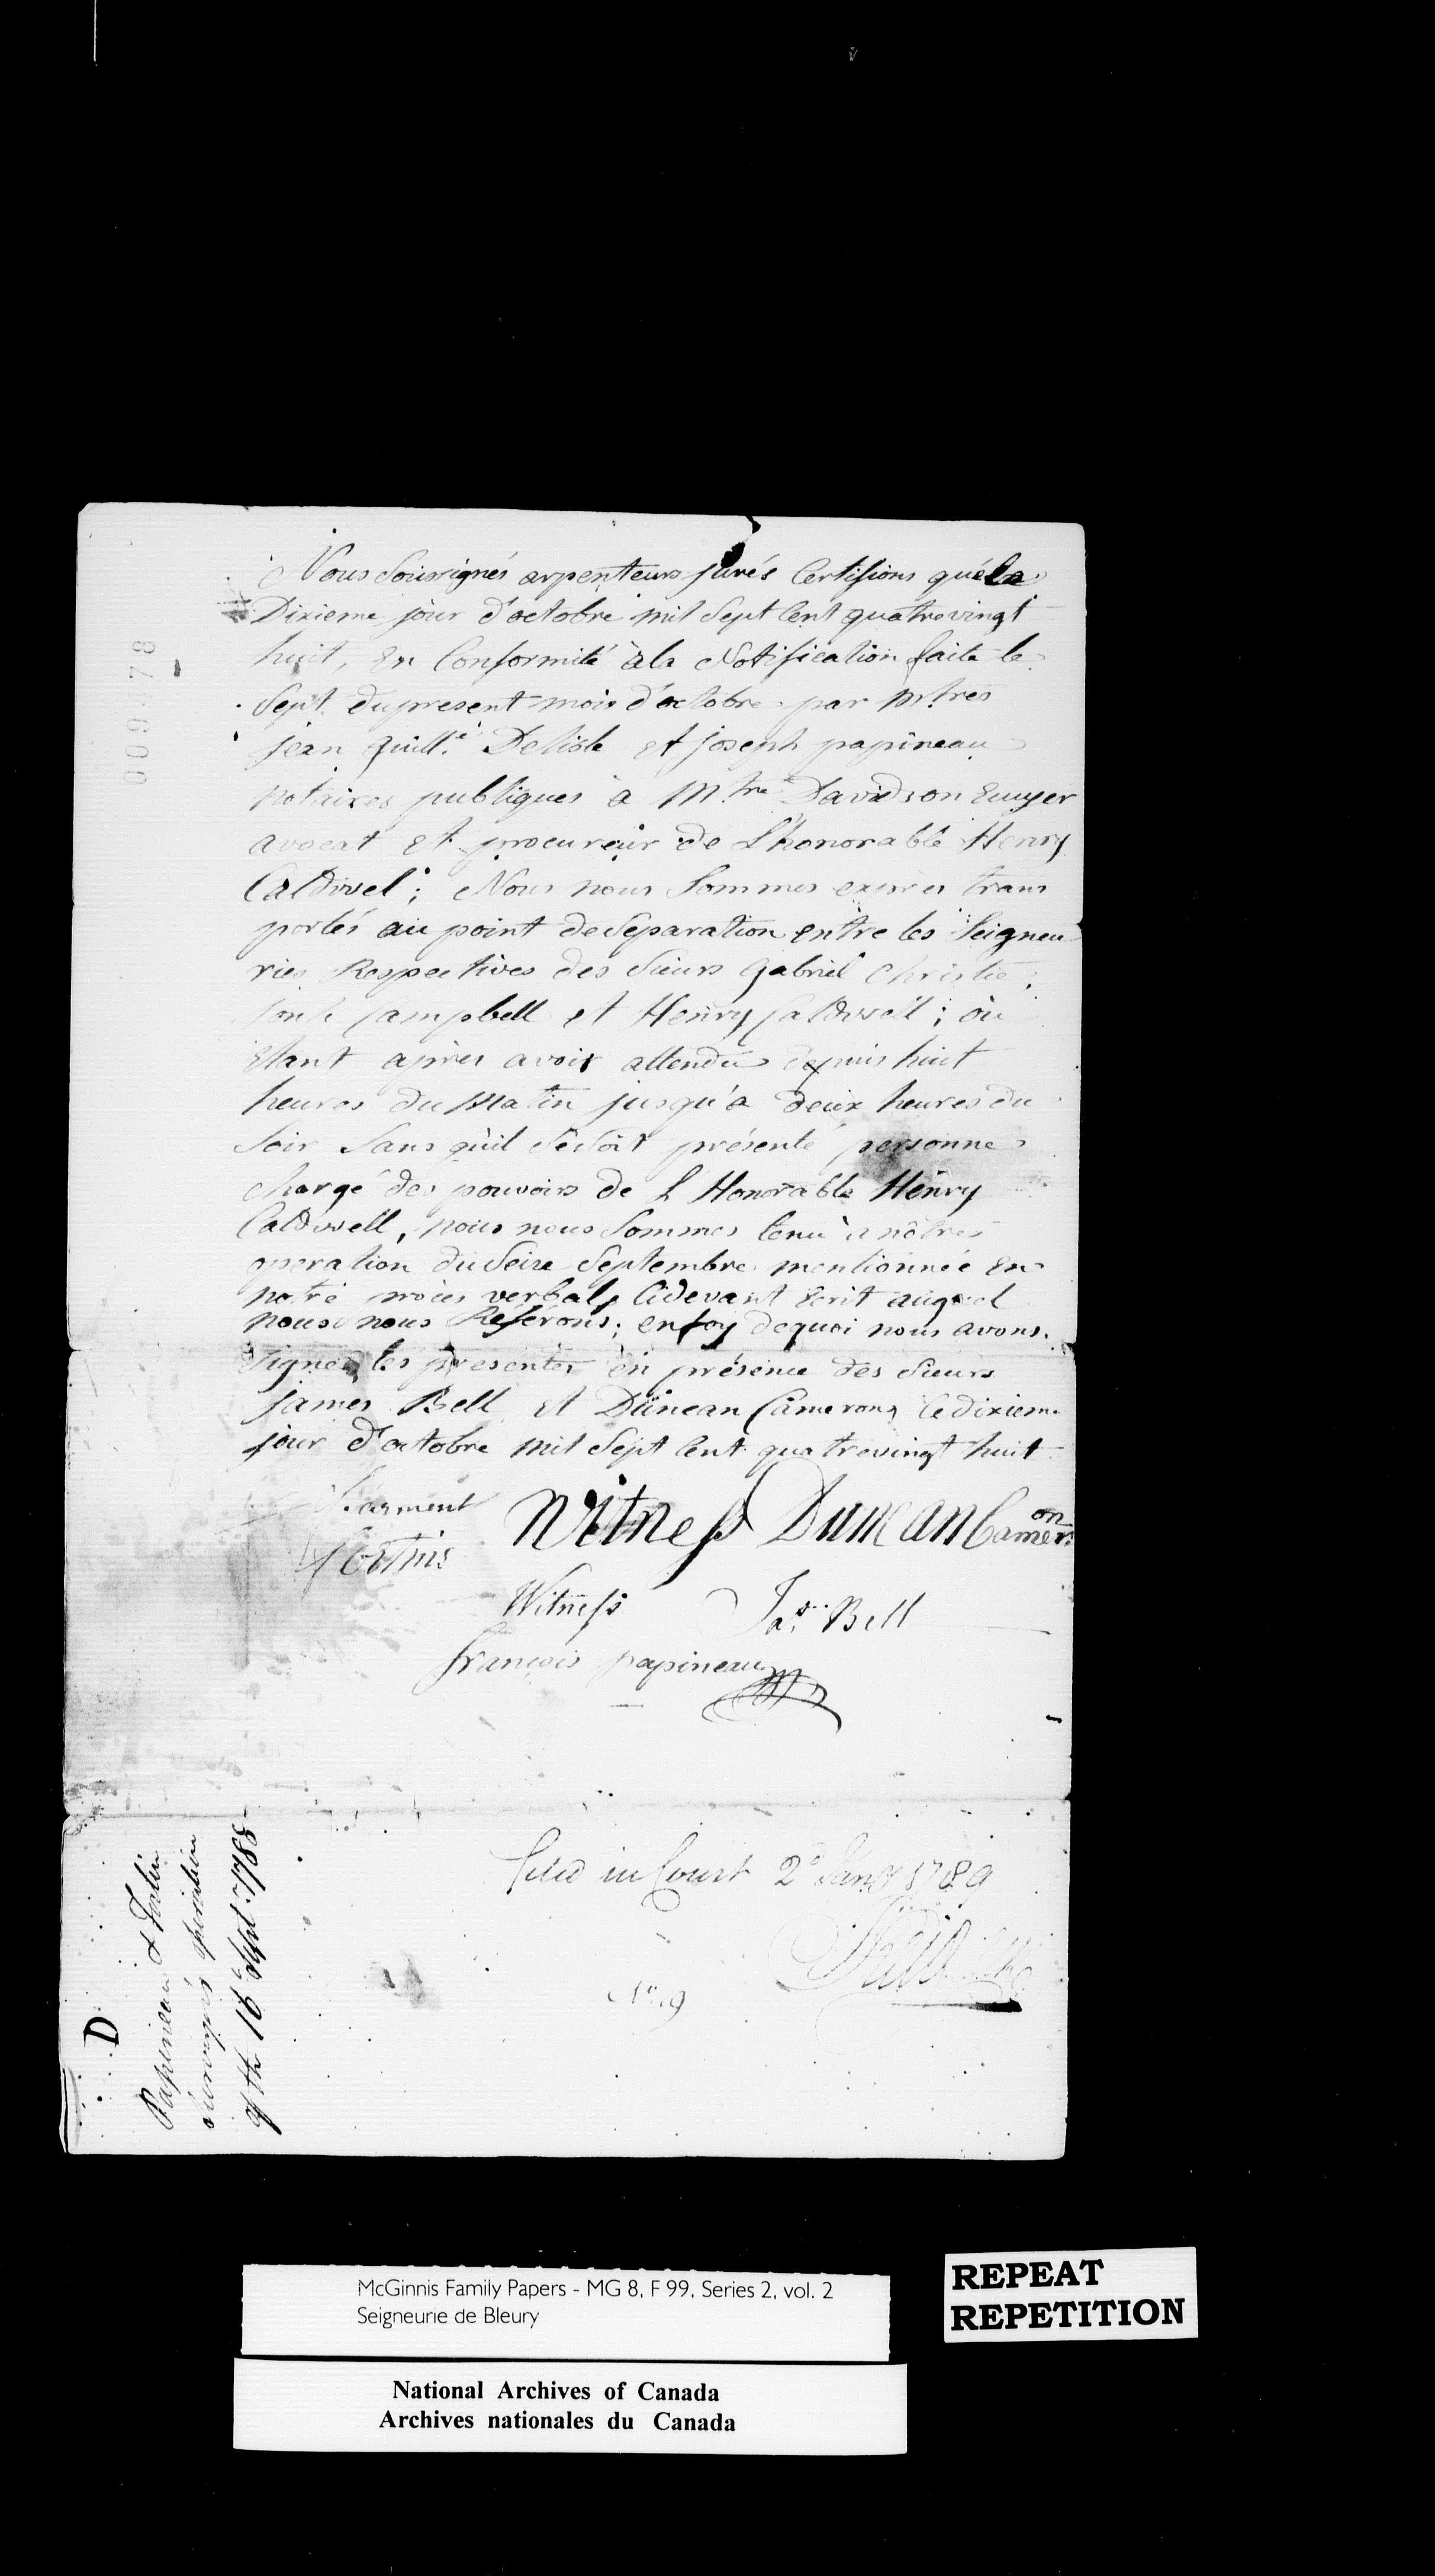 Nous Soussignés arpenteurs jurés Certifions que le
Dixieme jour d'octobre mil Sept Cent quatrevingt
huit, En Conformité à la Notification faite le
Sept du present mois d'octobre par M.tres
jean Guill.e Delisle et joseph papineau
notaires publiques à M.tre Davidson Ecuyer
avocat et procureur de L'honorable Henry
Caldwel; Nous nous Sommes exprès trans
portés au point de Separation entre les Seigneu
ries Respectives des Sieurs Gabriel Christie,
Campbell et Henry Caldwell; où
Etant après avoir attendu depuis huit
heures du Matin jusqu'à deux heures du
Soir Sans qu'il Se Soit présenté personne
chargé des pouvoirs de L'Honorable Henry
Caldwell, nous nous Sommes tenu à nôtre
operation du Seize Septembre mentionnée En
notre procès verbal, Cidevant Ecrit auquel
nous nous Référons; en foy de quoi nous avons
signé les presentes en présence des Sieurs
james Bell et Duncan Cameron, le dixieme
jour d'octobre mil Sept Cent quatrevingt huit
Witness Duncan Cameron
Witness Jas. Bell
françois papineau
009878
filed in Court 2d Jany 1789
No. 9
D
Papineau & Fortin
Surveyors operation
of the 16 Sept. 1788
McGinnis Family Papers - MG 8, F 99, Series 2, vol. 2
Seigneurie de Bleury
REPEAT
REPETITION
National Archives of Canada
Archives nationales du Canada